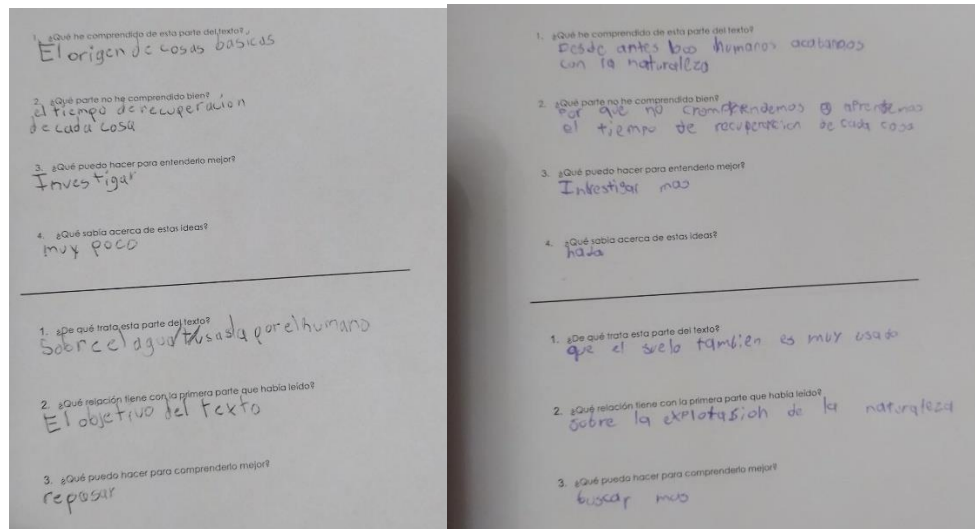 1. ¿Qué he comprendido de esta parte del texto?
El origen de cosas basicas
2. ¿Qué parte no he comprendido bien?
el tiempo de recuperacion
de cada cosa
3. ¿Qué puedo hacer para entenderlo mejor?
Investigar
4. ¿Qué sabía acerca de estas ideas?
muy poco
1. ¿De qué trata esta parte del texto?
Sobre el agua por el humano
2. ¿Qué relación tiene con la primera parte que había leído?
El objetivo del texto
3. ¿Qué puedo hacer para comprenderlo mejor?
repasar
1. ¿Qué he comprendido de esta parte del texto?
Desde antes los humanos acabamos
con la naturaleza
2. ¿Qué parte no he comprendido bien?
por que no aprendemos
el tiempo de recuperacion de cada cosa
3. ¿Qué puedo hacer para entenderlo mejor?
Investigar mas
4. ¿Qué sabía acerca de estas ideas?
nada
1. ¿De qué trata esta parte del texto?
que el suelo tambien es muy usado
2. ¿Qué relación tiene con la primera parte que había leído?
sobre la explotasion de la naturaleza
3. ¿Qué puedo hacer para comprenderlo mejor?
buscar mas